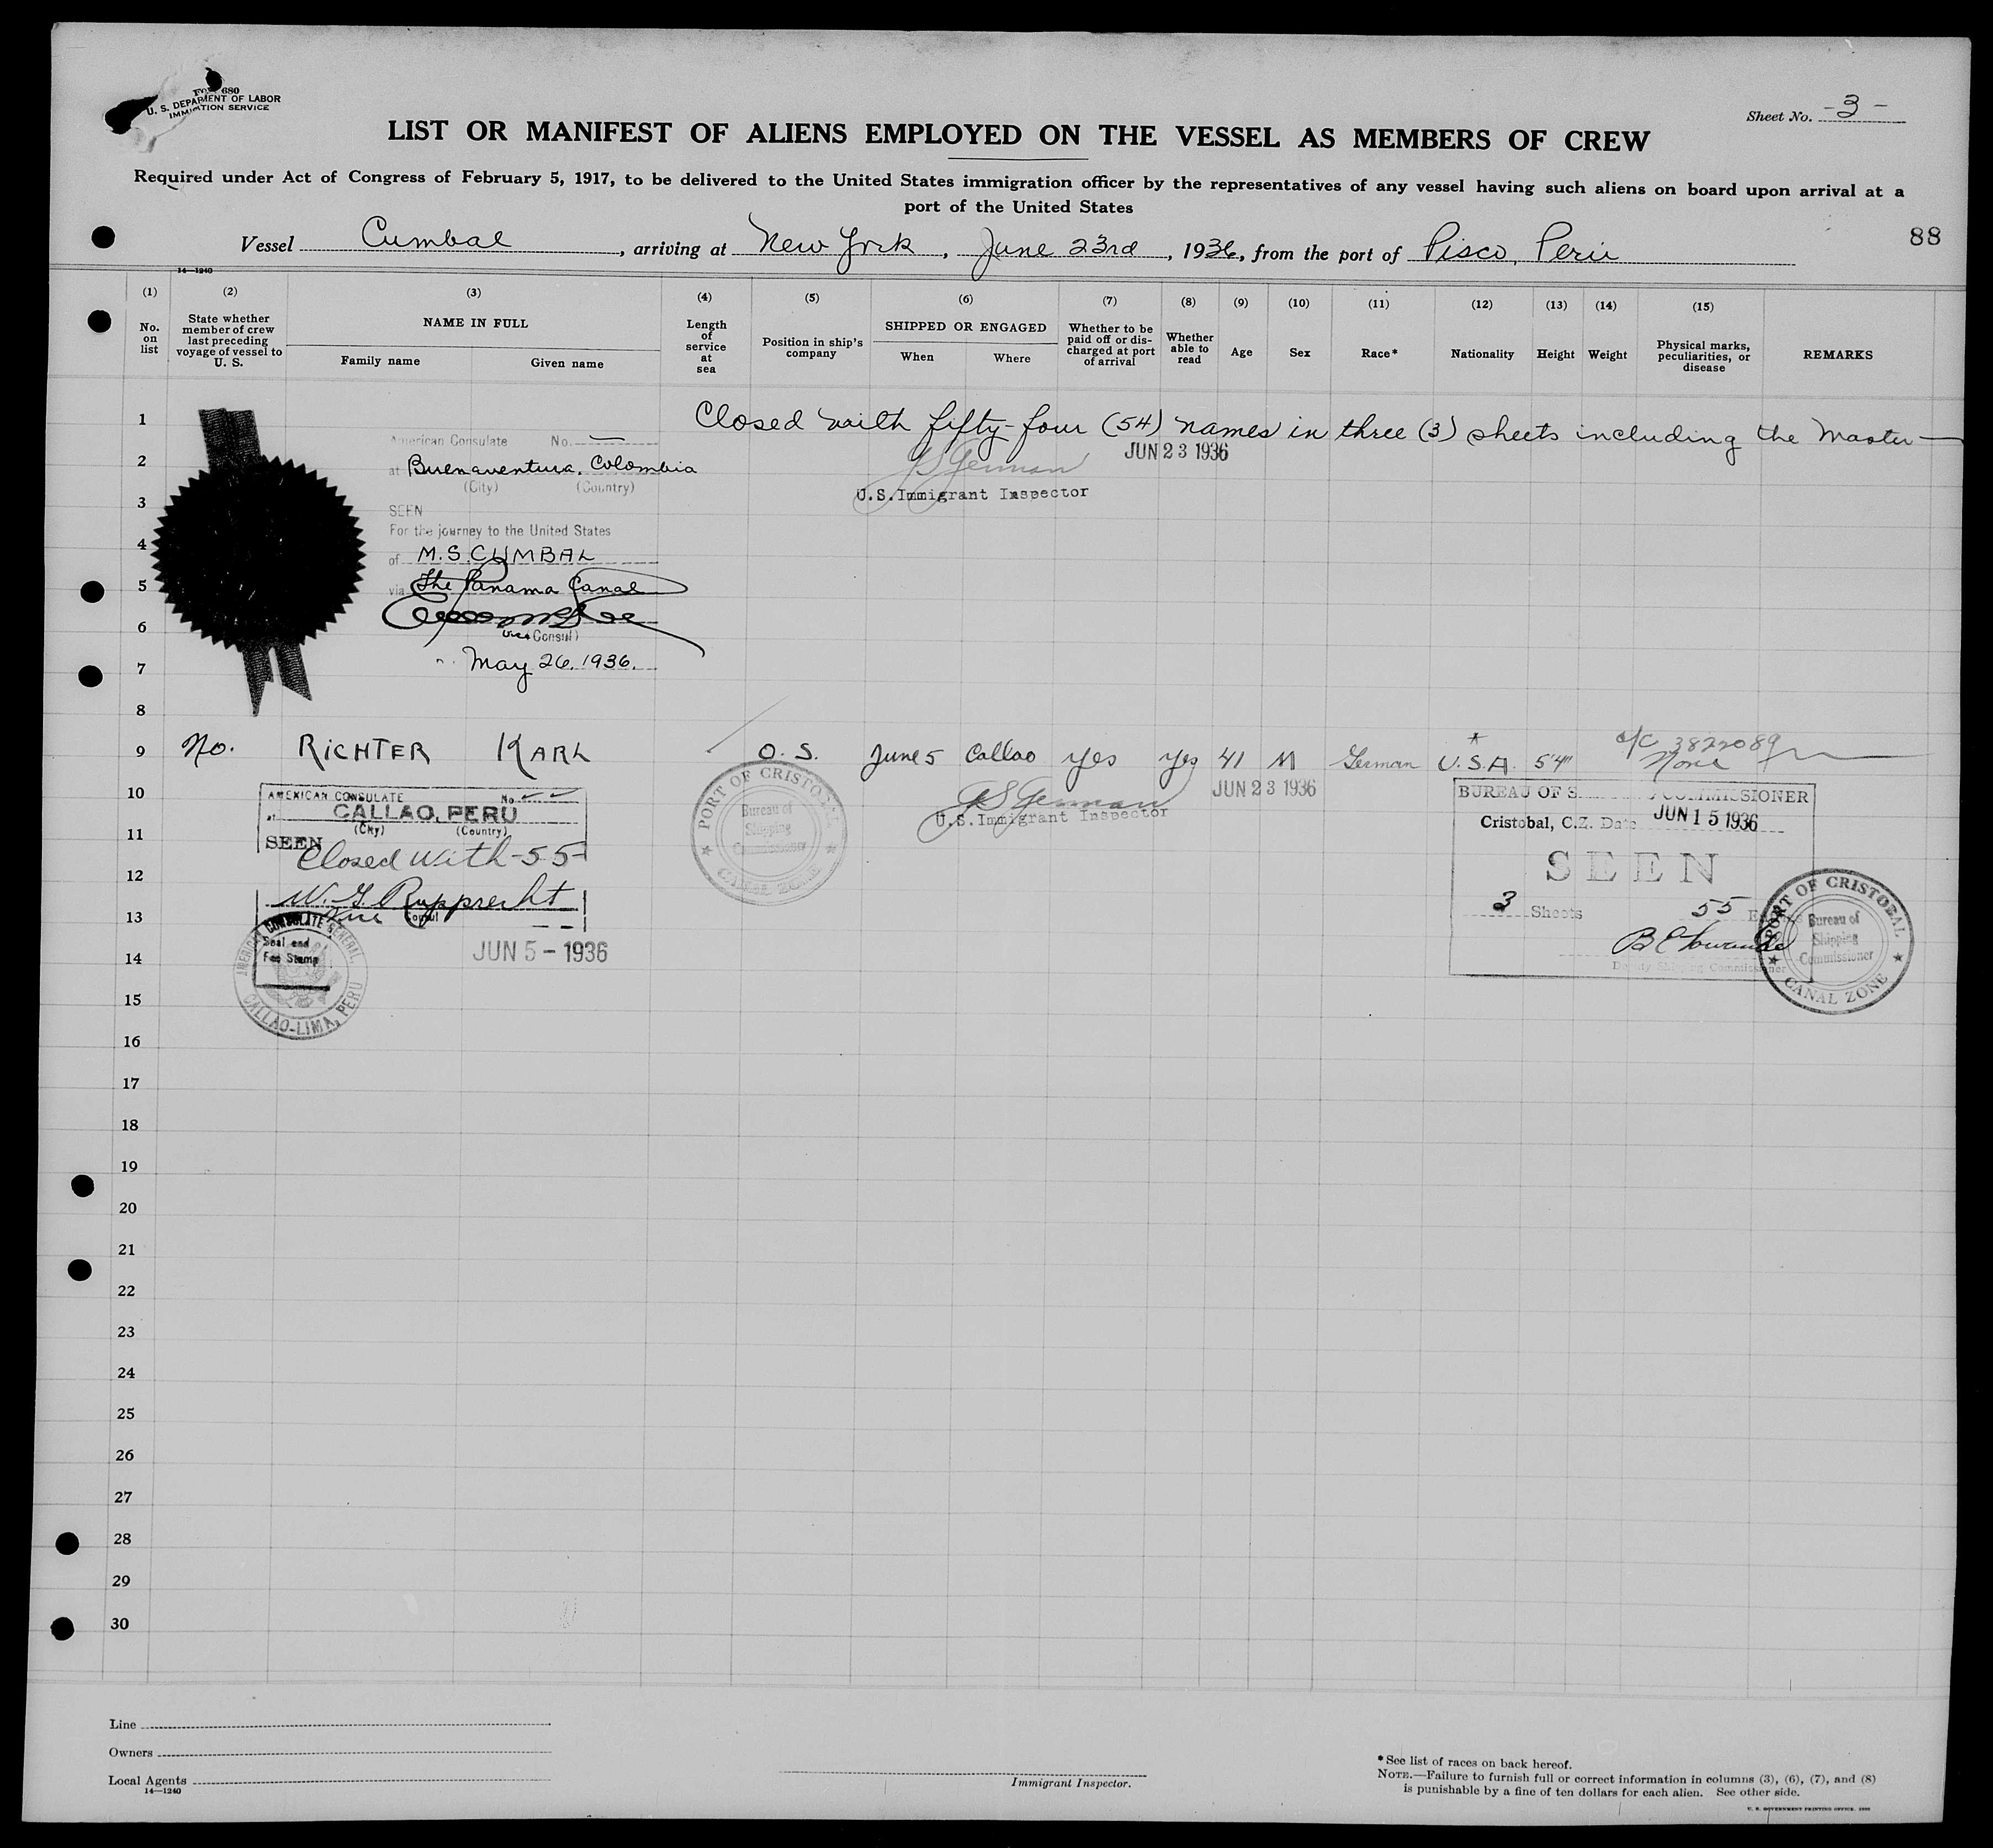 Form 680
U. S. DEPARTMENT OF LABOR
IMMIGRATION SERVICE
Sheet No. -3-
LIST OR MANIFEST OF ALIENS EMPLOYED ON THE VESSEL AS MEMBERS OF CREW
Required under Act of Congress of February 5, 1917, to be delivered to the United States immigration officer by the representatives of any vessel having such aliens on board upon arrival at a
port of the United States
88
Vessel Cumbal, arriving at New York, June 23rd, 1936, from the port of Pisco, Peru
14-1240
(1) (2) (3) (4) (5) (6) (7) (8) (9) (10) (11) (12) (13) (14) (15)
No. on list
State whether member of crew last preceding voyage of vessel to U. S.
NAME IN FULL
Family name Given name
Length of service at sea
Position in ship's company
SHIPPED OR ENGAGED
When Where
Whether to be paid off or discharged at port of arrival
Whether able to read
Age
Sex
Race*
Nationality
Height
Weight
Physical marks, peculiarities, or disease
REMARKS
1 Closed with fifty-four (54) names in three (3) sheets including the Master—
American Consulate No. —
JUN 23 1936
2 at Buenaventura, Colombia
(City) (Country)
U.S. Immigrant Inspector
3
SEEN
For the journey to the United States
4 of M.S. CUMBAL
5 via The Panama Canal
6
Vice Consul
7 May 26, 1936.
8
9 No. RICHTER KARL O. S. June 5 Callao yes yes 41 M German U.S.A. 5'4" None
c/c 3822089
10
AMERICAN CONSULATE No.
at CALLAO, PERU
(City) (Country)
SEEN
Closed with -55-
W. G. Rupprecht
Vice Consul
JUN 5 - 1936
Seal and
Fee Stamp
AMERICAN CONSULATE GENERAL,
CALLAO-LIMA, PERU
PORT OF CRISTOBAL
Bureau of
Shipping
Commissioner
CANAL ZONE
JUN 23 1936
U.S. Immigrant Inspector
BUREAU OF S COMMISSIONER
Cristobal, C.Z. Date JUN 15 1936
SEEN
3 Sheets 55
Deputy Shipping Commissioner
PORT OF CRISTOBAL
Bureau of
Shipping
Commissioner
CANAL ZONE
11
12
13
14
15
16
17
18
19
20
21
22
23
24
25
26
27
28
29
30
Line
Owners
Local Agents
14—1240
Immigrant Inspector.
*See list of races on back hereof.
NOTE.—Failure to furnish full or correct information in columns (3), (6), (7), and (8)
is punishable by a fine of ten dollars for each alien. See other side.
U. S. GOVERNMENT PRINTING OFFICE